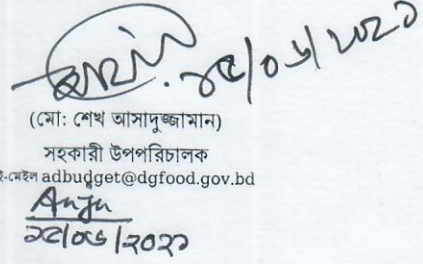 ১৫/০৬/২০২১
(মো: শেখ আসাদুজ্জামান)
সহকারী উপপরিচালক
ই-মেইল adbudget@dgfood.gov.bd
Anju
১৫/০৬/২০২১